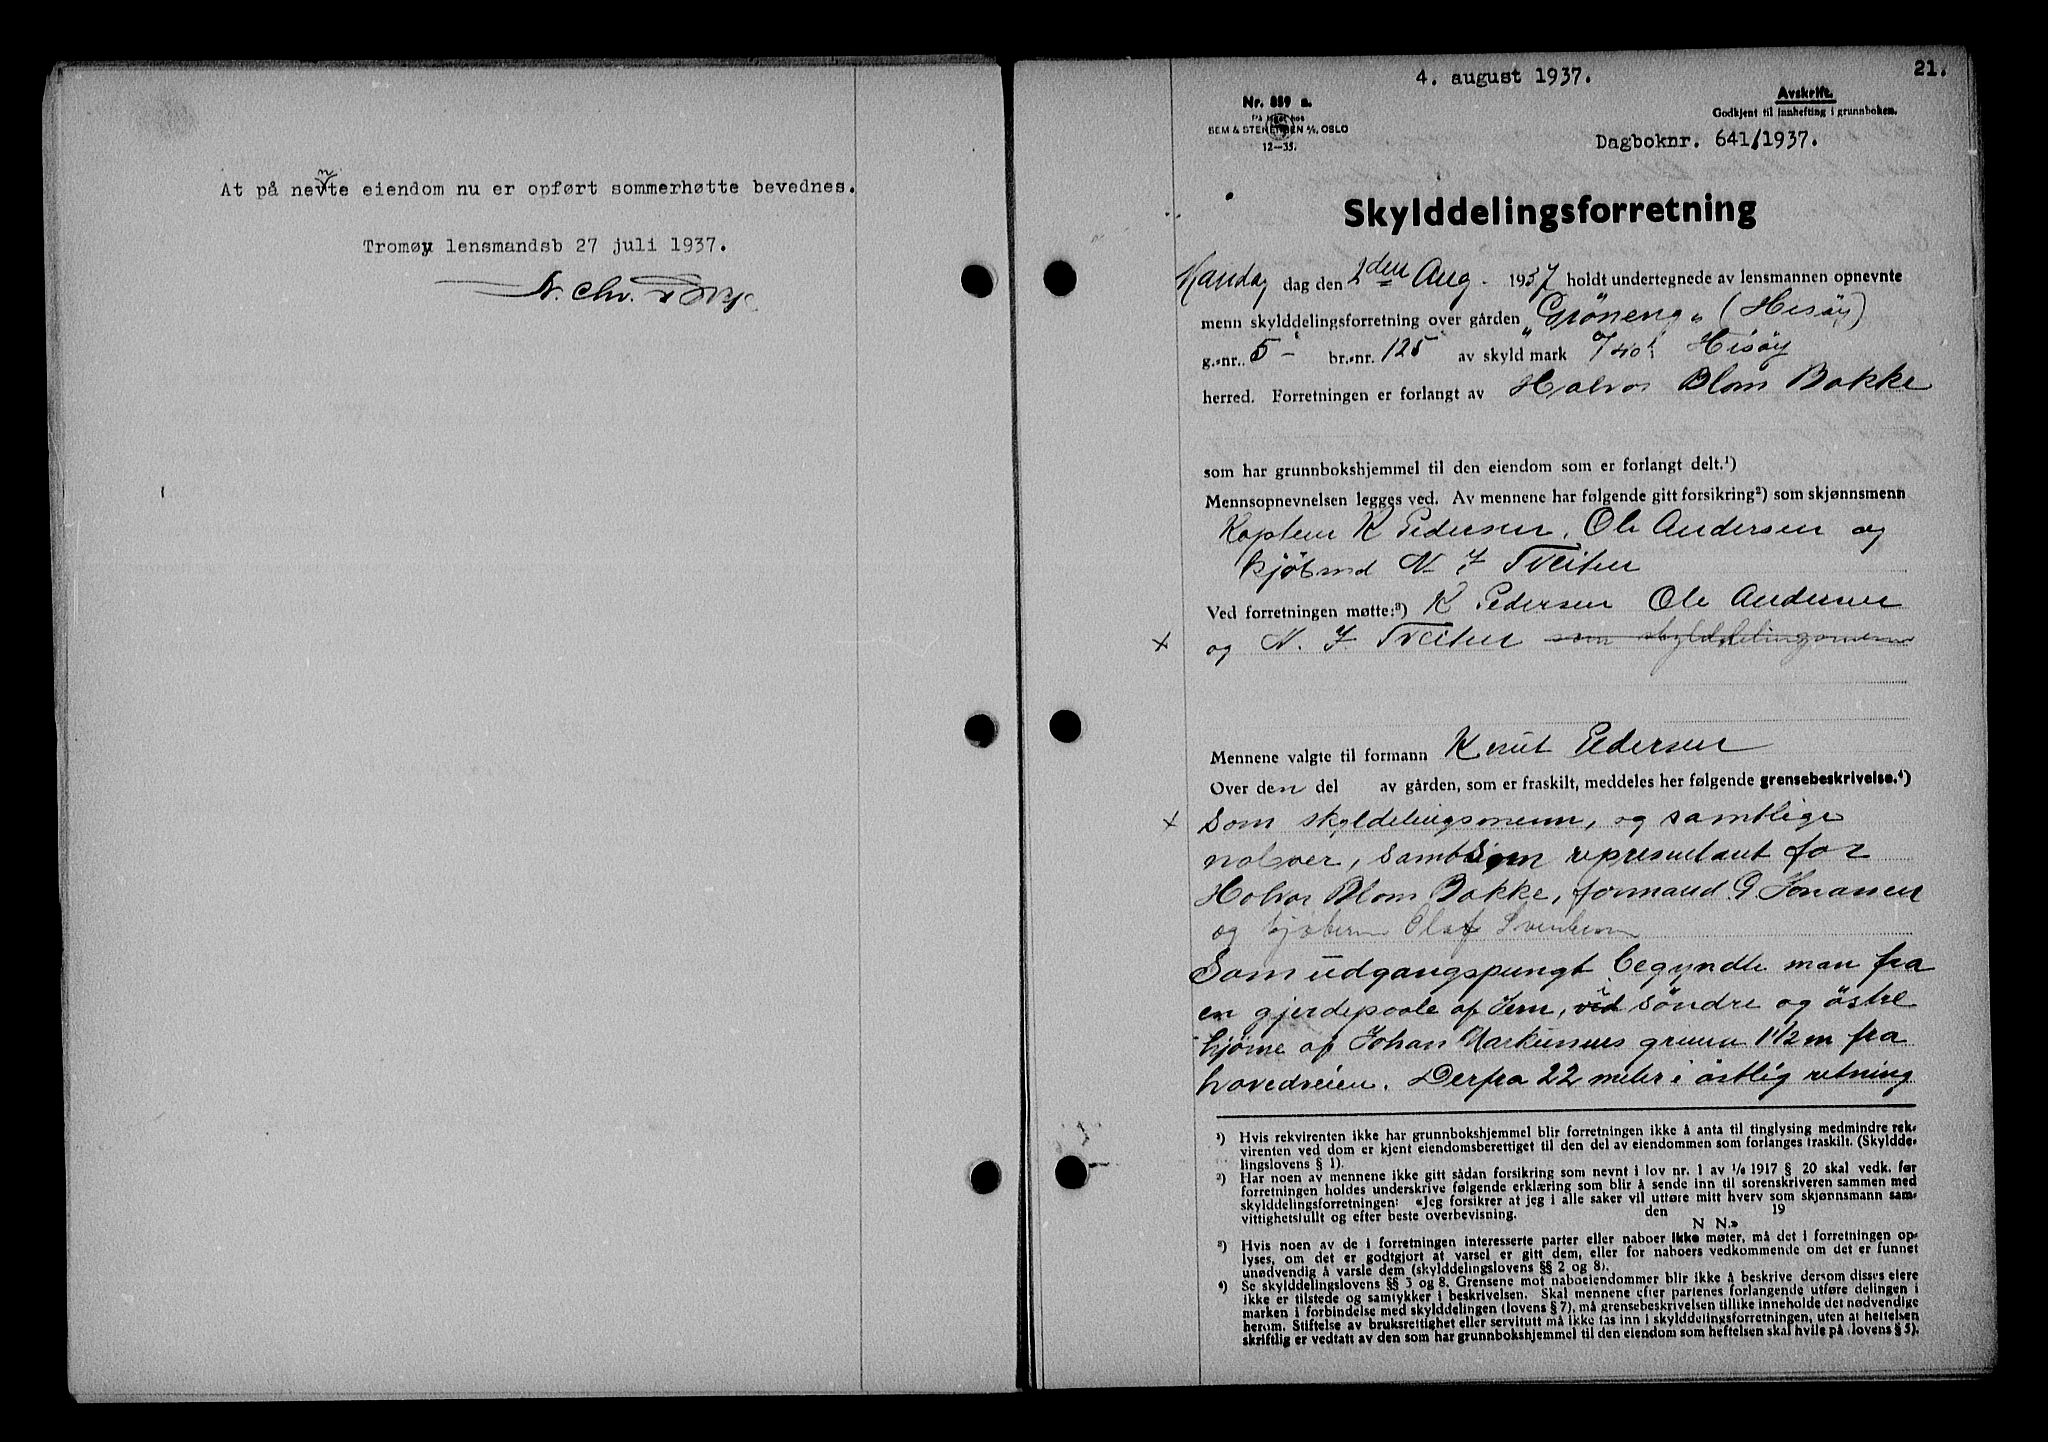 At på nevnte eiendom nu er opført sommerhøtte bevednes.
Tromøy lensmandsb 27 juli 1937.
N. Chr.
4. august 1937.
21.
Nr. 859 a.
På lager hos
SEM & STENERSEN A/S, OSLO
12—35.
Avskrift.
Godkjent til innhefting i grunnboken.
Dagboknr. 641/1937.
Skylddelingsforretning
Mandag dag den 2den Aug. 1937 holdt undertegnede av lensmannen opnevnte
menn skylddelingsforretning over gården „Gröneng„ (Hisöy)
g.-nr. 5 - br.-nr. 125 av skyld mark 0/40 i Hisöy
herred. Forretningen er forlangt av Halvor Blom Bakke
som har grunnbokshjemmel til den eiendom som er forlangt delt.¹)
Mennsopnevnelsen legges ved. Av mennene har følgende gitt forsikring²) som skjønnsmenn
Kaptein K Pedersen, Ole Andersen og
kjöbmd N. J. Tveiten
Ved forretningen møtte:³) K Pedersen Ole Andersen
x og N. J. Tveiten som skylddelingsmenn
Mennene valgte til formann Knut Pedersen
Over den del av gården, som er fraskilt, meddeles her følgende grensebeskrivelse.⁴)
x Som skyldelingsmenn, og samtlige
naboer, samt som representant for
Halvor Blom Bakke, formand G. Jonassen
og kjöberen Olaf
Som udgangspungt begyndte man fra
en gjerdepaale af Jern, i söndre og östre
hjörne af Johan Markussens grund 1 1/2 m fra
hovedveien. Derfra 22 meter i östlig retning
¹) Hvis rekvirenten ikke har grunnbokshjemmel blir forretningen ikke å anta til tinglysing medmindre rek-
virenten ved dom er kjent eiendomsberettiget til den del av eiendommen som forlanges fraskilt. (Skyldde-
lingslovens § 1).
²) Har noen av mennene ikke gitt sådan forsikring som nevnt i lov nr. 1 av 1/6 1917 § 20 skal vedk. før
forretningen holdes underskrive følgende erklæring som blir å sende inn til sorenskriveren sammen med
skylddelingsforretningen: «Jeg forsikrer at jeg i alle saker vil utføre mitt hverv som skjønnsmann sam-
vittighetsfullt og efter beste overbevisning. den 19
N N.»
³) Hvis noen av de i forretningen interesserte parter eller naboer ikke møter, må det i forretningen op-
lyses, om det er godtgjort at varsel er gitt dem, eller for naboers vedkommende om det er funnet
unødvendig å varsle dem (skylddelingslovens §§ 2 og 8).
⁴) Se skylddelingslovens §§ 3 og 8. Grensene mot naboeiendommer blir ikke å beskrive dersom disses eiere
ikke er tilstede og samtykker i beskrivelsen. Skal mennene efter partenes forlangende utføre delingen i
marken i forbindelse med skylddelingen (lovens § 7), må grensebeskrivelsen tillike inneholde det nødvendige
herom. Stiftelse av bruksrettighet eller servitutt må ikke tas inn i skylddelingsforretningen, uten at heftelsen
skriftlig er vedtatt av den som har grunnbokshjemmel til den eiendom som heftelsen skal hvile på (lovens § 5).